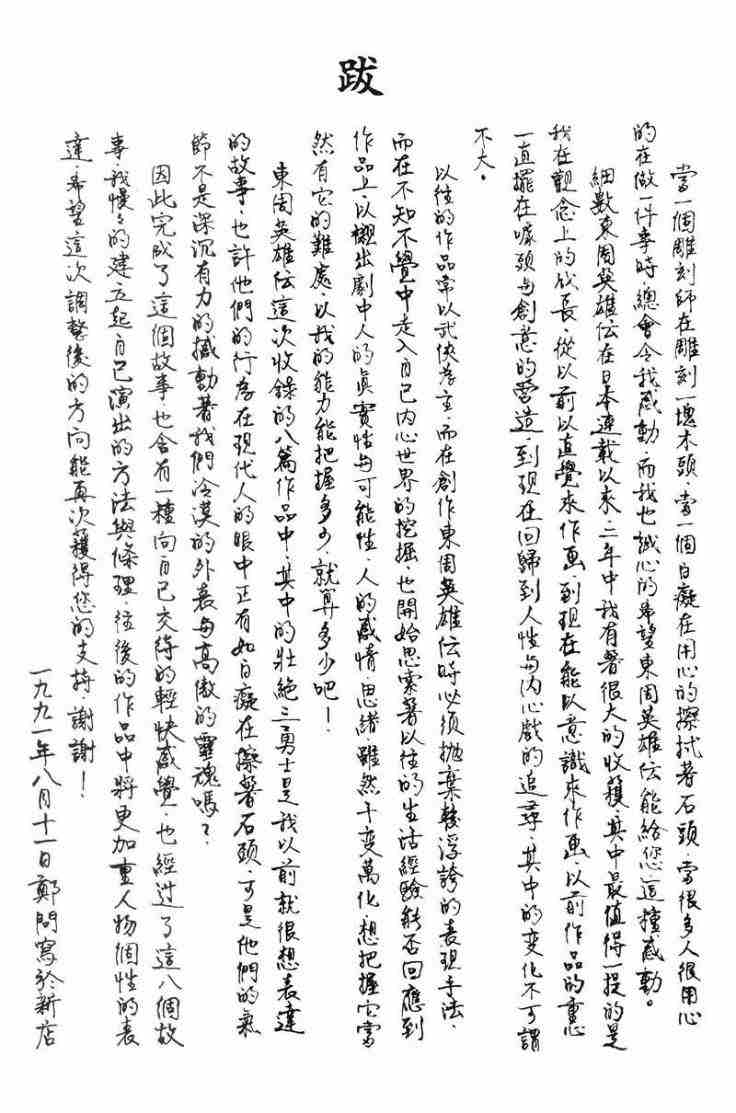 跋
當一個雕刻師在雕刻一塊木頭，當一個白癡在用心的擦拭著石頭，當很多人很用心
的在做一件事時總會令我感動，而我也誠心的希望東周英雄伝能給您這種感動。
細數東周英雄伝在日本連載以來，二年中我有著很大的收獲，其中最值得一提的是
我在觀念上的成長，從以前以直覺來作画，到現在能以意識來作画，以前作品的重心
一直擺在噱頭与創意的營造，到現在回歸到人性与內心戲的追尋，其中的変化不可謂
不大。
以往的作品常以武俠為主，而在創作東周英雄伝時必須拋棄較浮誇的表現手法，
而在不知不覺中走入自己內心世界的挖掘，也開始思索著以往的生活經驗能否回應到
作品上，以襯出劇中人的真實性与可能性，人的感情、思緒，雖然千変萬化，想把握它當
然有它的難處，以我的能力能把握多少，就算多少吧！
東周英雄伝這次收錄的八篇作品中，其中的壯絕三勇士是我以前就很想表達
的故事，也許他們的行為在現代人的眼中正有如白癡在擦著石頭，可是他們的氣
節不是深沉有力的撼動著我們冷漠的外表与高傲的靈魂嗎？
因此完成了這個故事也含有一種向自己交待的輕快感覺，也經過了這八個故
事，我慢々的建立起自己演出的方法與條理，往後的作品中將更加重人物個性的表
達，希望這次調整後的方向能再次獲得您的支持，謝謝！
一九九一年八月十一日鄭問寫於新店